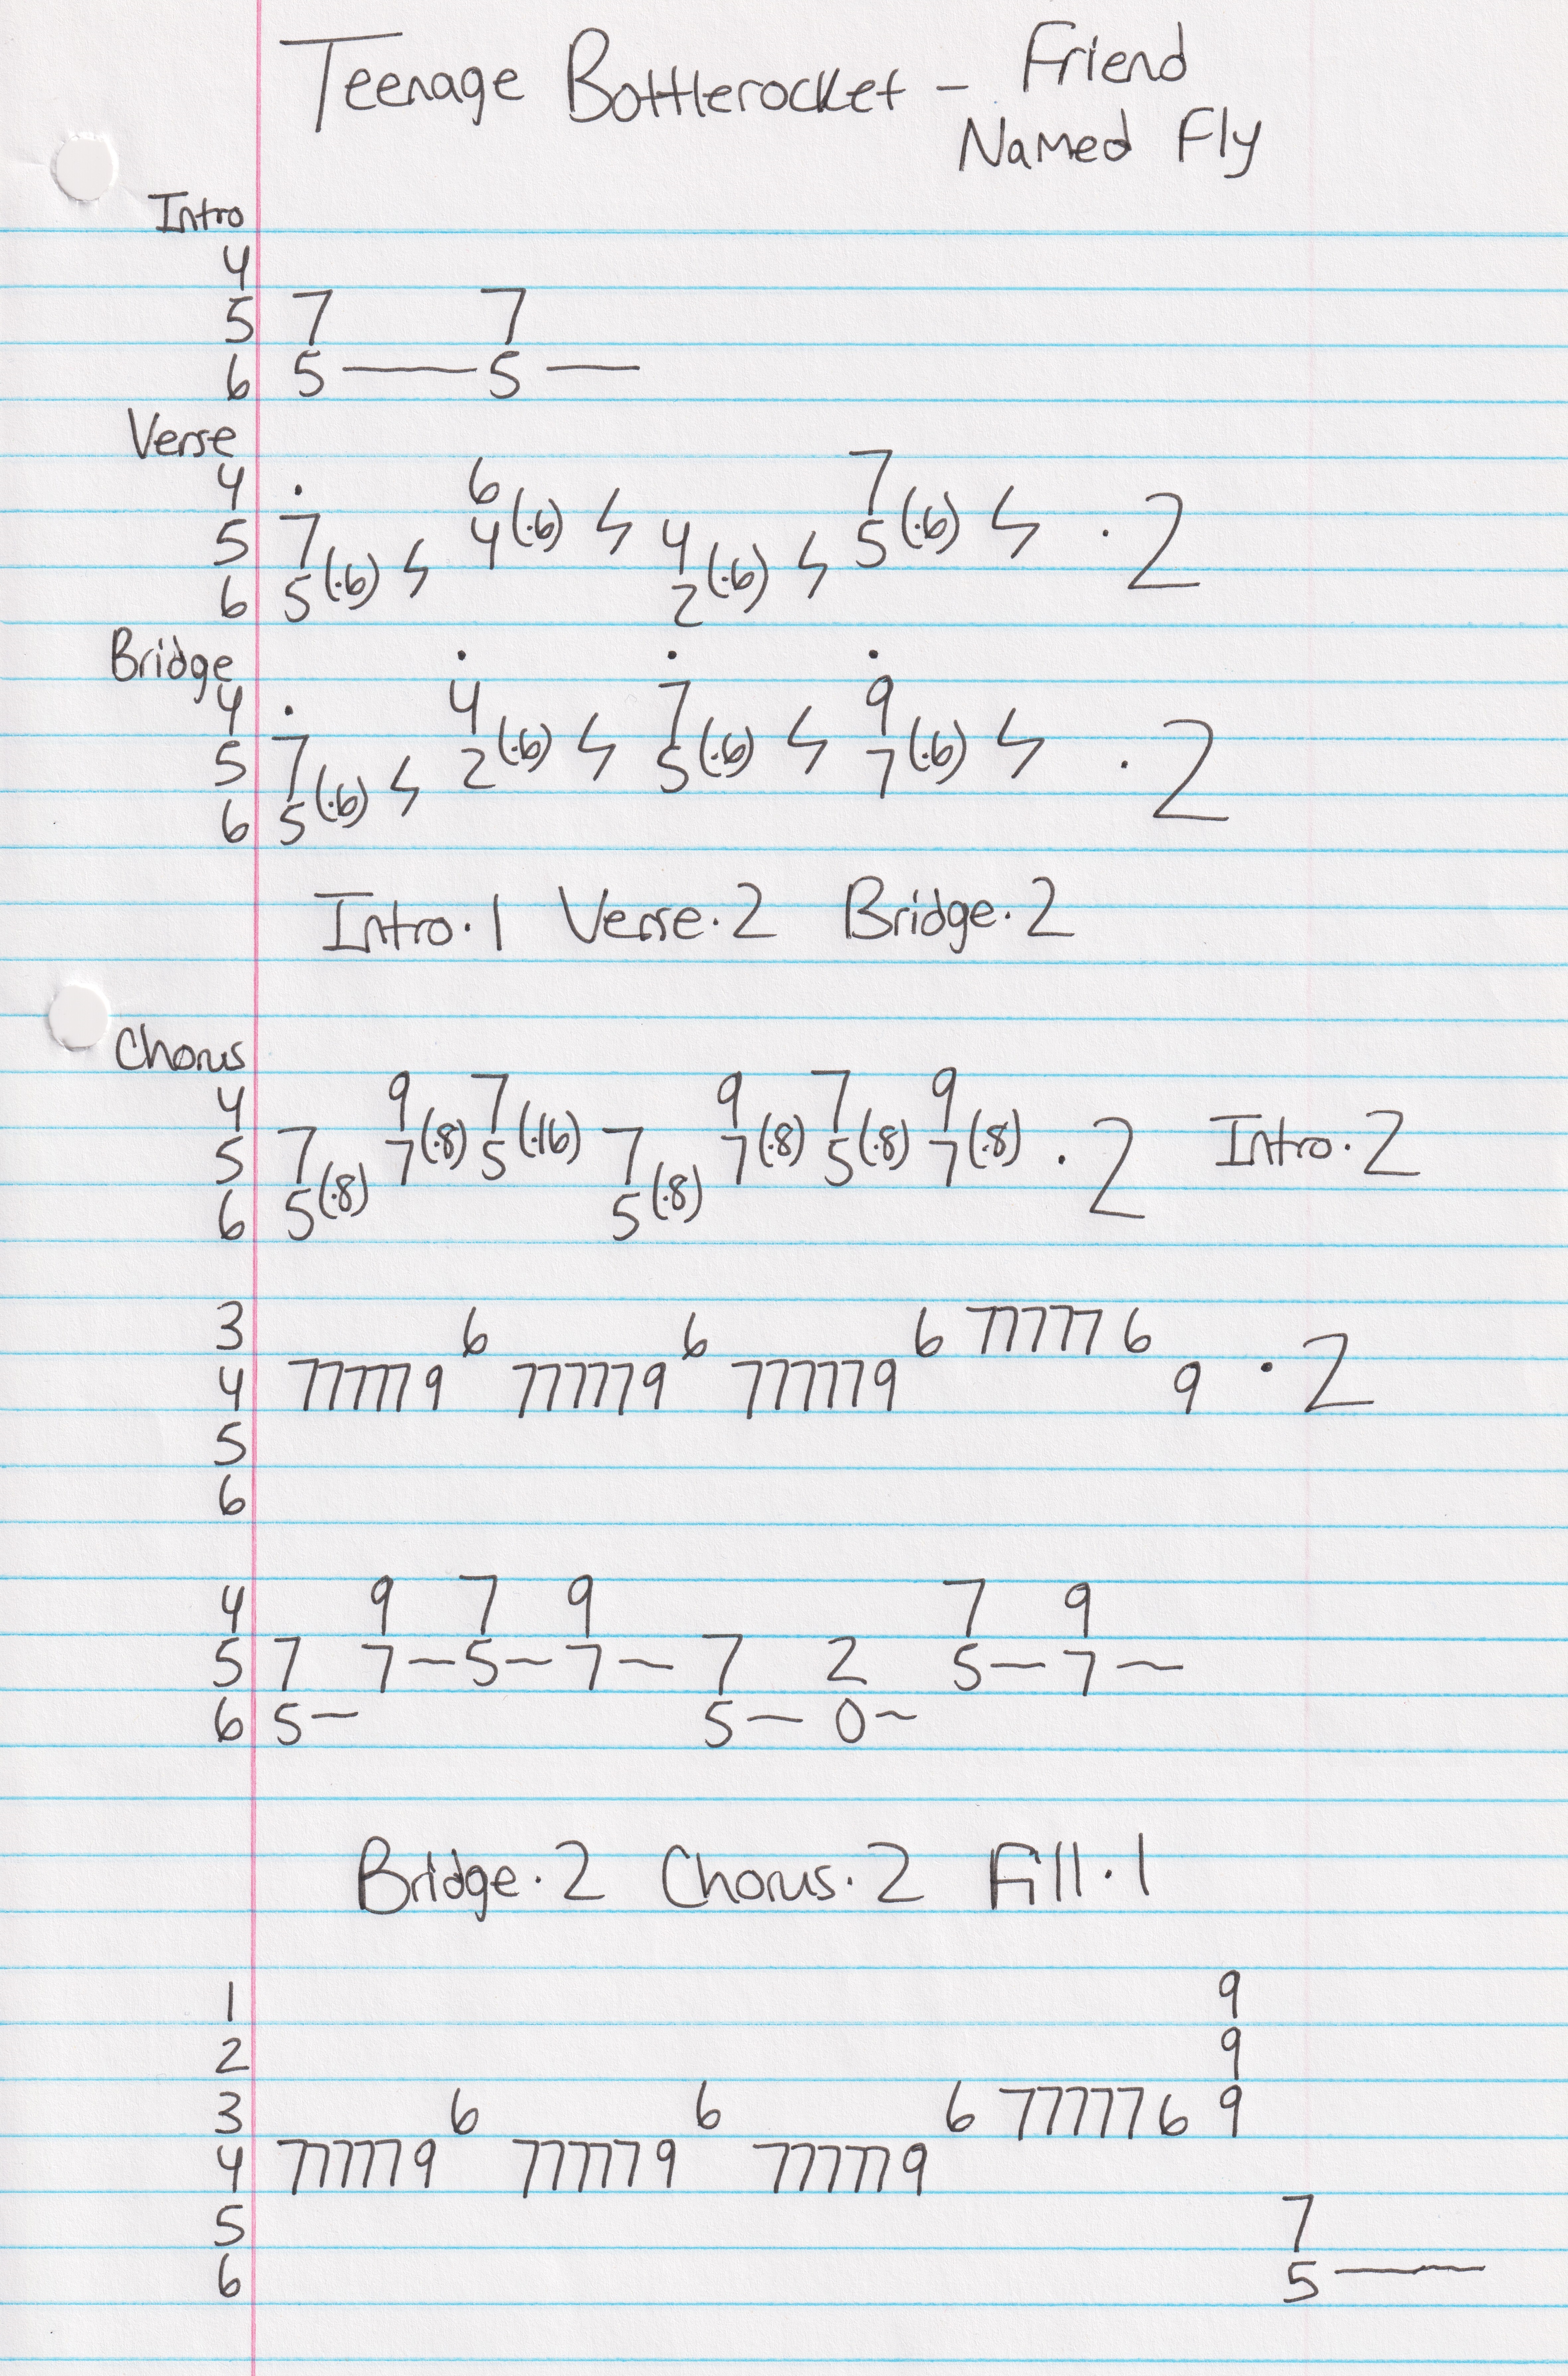 Teenage Bottlerocket - Friend
Named Fly
Intro
4
5 7 7
6 5 — 5 —
Verse
4 · 6 7
5 7 4(·6) ϟ 4 5(·6) ϟ ·2
6 5(·6) ϟ 2(·6) ϟ
Bridge · · ·
4 · 4 7 9
5 7 2(·6) ϟ 5(·6) ϟ 7(·6) ϟ ·2
6 5(·6) ϟ
Intro·1 Verse·2 Bridge·2
Chorus
4 9 7 9 7 9
5 7 7(·8) 5(·16) 7 7(·8) 5(·8) 7(·8) ·2 Intro·2
6 5(·8) 5(·8)
3 6 6 6 77777 6
4 777779 777779 777779 9 ·2
5
6
4 9 7 9 7 9
5 7 7~5~7~ 7 2 5~7~
6 5~ 5~ 0~
Bridge·2 Chorus·2 Fill·1
1 9
2 9
3 6 6 6 777776 9
4 777779 777779 777779
5 7
6 5 —